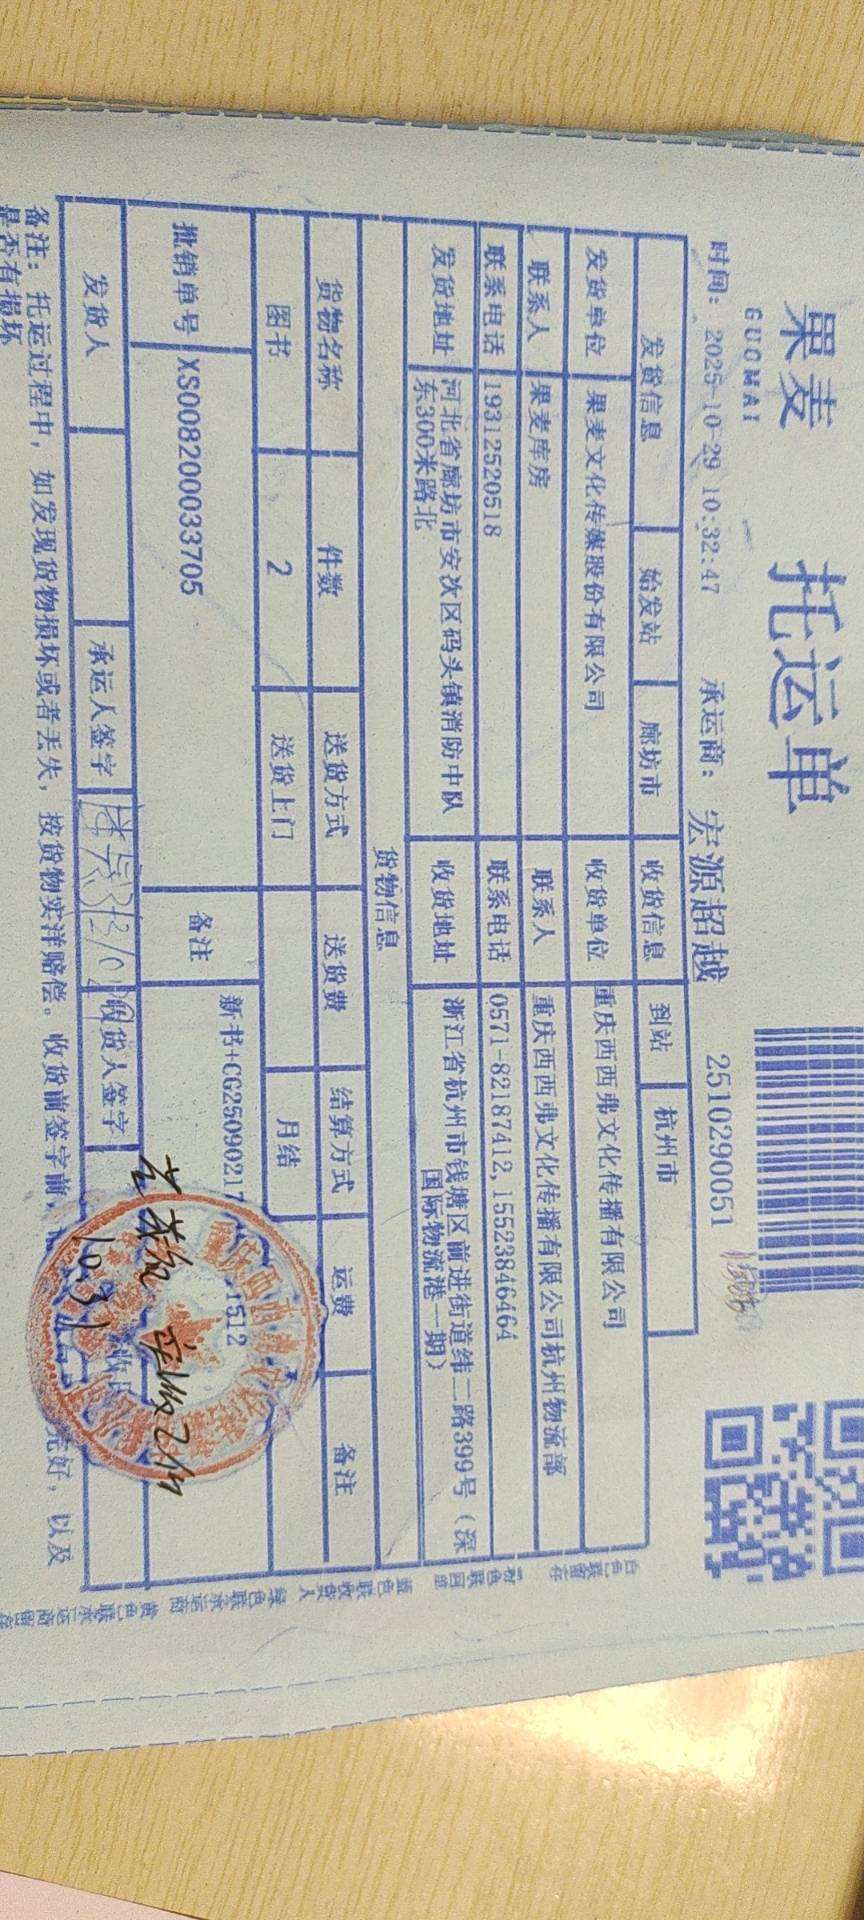 果麦
GUOMAI
托运单
时间: 2025-10-29 10:32:47 承运商: 宏源超越 2510290051
发货信息 始发站 廊坊市 收货信息 到站 杭州市
发货单位 果麦文化传媒股份有限公司 收货单位 重庆西西弗文化传播有限公司
联系人 果麦库房 联系人 重庆西西弗文化传播有限公司杭州物流部
联系电话 19312520518 联系电话 0571-82187412,15523846464
发货地址 河北省廊坊市安次区码头镇消防中队东300米路北 收货地址 浙江省杭州市钱塘区前进街道纬二路399号（深国际物流港一期）
货物信息
货物名称 件数 送货方式 送货费 结算方式 运费 备注
图书 2 送货上门 月结
批销单号 XS008200033705 备注 新书+CG25090217 1512
发货人 承运人签字 收货人签字
10.31
备注: 托运过程中, 如发现货物损坏或者丢失, 按货物实洋赔偿。收货前签字前, 完好, 以及
是否有损坏
白色联留存 蓝色联收货人 绿色联承运商 黄色联承运商留存